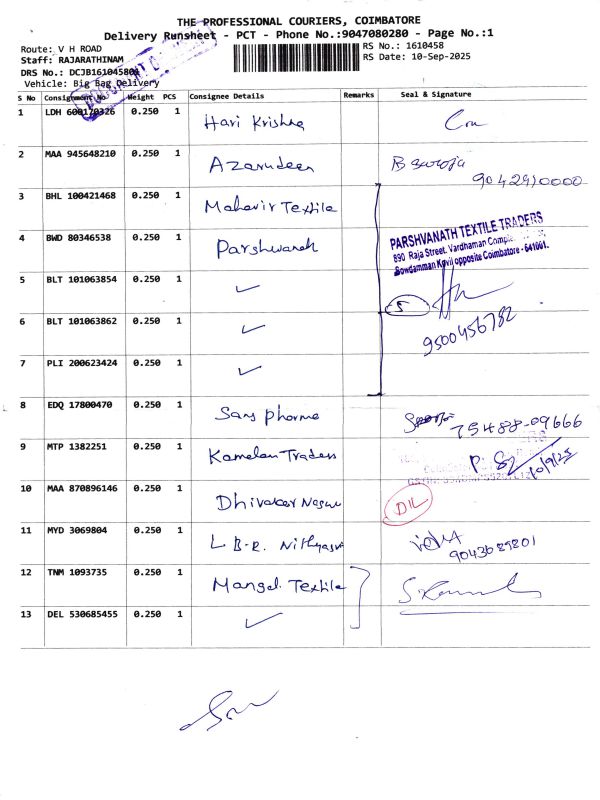 THE PROFESSIONAL COURIERS, COIMBATORE
Delivery Runsheet - PCT - Phone No.:9047080280 - Page No.:1
Route: V H ROAD
RS No.: 1610458
Staff: RAJARATHINAM
RS Date: 10-Sep-2025
DRS No.: DCJB1610458
Vehicle: Big Bag Delivery
S No Consignment No Weight PCS Consignee Details Remarks Seal & Signature
1 LDH 600170326 0.250 1 Hari Krishna
2 MAA 945648210 0.250 1 Azarudeen B
9042910000
3 BHL 100421468 0.250 1 Mahavir Textile
4 BWD 80346538 0.250 1 Parshwanath
PARSHVANATH TEXTILE TRADERS
890 Raja Street, Vardhaman
Sowdamman Kovil opposite Coimbatore - 641001.
5 BLT 101063854 0.250 1 ✓
5
6 BLT 101063862 0.250 1 ✓
9500456782
7 PLI 200623424 0.250 1 ✓
8 EDQ 17800470 0.250 1 Sans pharma
75488-09666
9 MTP 1382251 0.250 1 Kamelan Traders
10/9/25
10 MAA 870896146 0.250 1 Dhivakar
D/L
11 MYD 3069804 0.250 1 L B-R. Nithyasri
9043689801
12 TNM 1093735 0.250 1 Mangal Textile
13 DEL 530685455 0.250 1 ✓